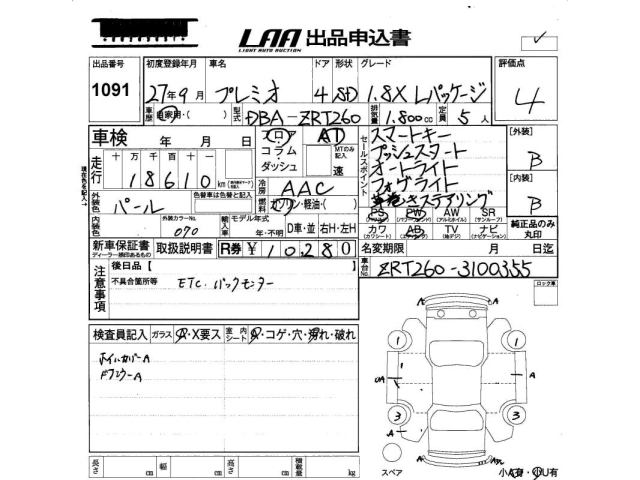 LAA 出品申込書
LIGHT AUTO AUCTION
出品番号 初度登録年月 車名 ドア 形状 グレード 評価点
1091 27年9月 プレミオ 4 SD 1.8X Lパッケージ 4
車歴 自家用・( ) 型式 DBA-ZRT260 排気量 1.800cc 定員 5人
車検 年 月 日 フロア AT スマートキー 【外装】
コラム・ MTのみ記入 プッシュスタート B
走行 十万千百十 ダッシュ 速 セールスポイント オートライト
18610 km フォグライト 【内装】
冷房 AAC 革巻きステアリング B
外装色 パール 色替車は色替と記入 燃料 ガソリン・軽油・( ) PS PW AW SR 純正品のみ
外装カラーNo. 070 輸入車 モデル年式 年・不明 D車・並 右H・左H カワ AB TV ナビ 丸印
新車保証書 取扱説明書 R券 ¥10,280 名変期限 月 日迄
ディーラー捺印あるもの
車台No. ZRT260-3100355
注意事項 後日品【 】 ロック車
不具合箇所等 ETC. バックモニター
検査員記入 ガラス A・X要ス 室内シート A・コゲ・穴・汚れ・破れ
ホイルカバーA
FフェンダーA
A A
1 1
UA A
3 3
A
スペア 小A有・小U有
長さ cm 幅 cm 高さ cm 積載量 kg